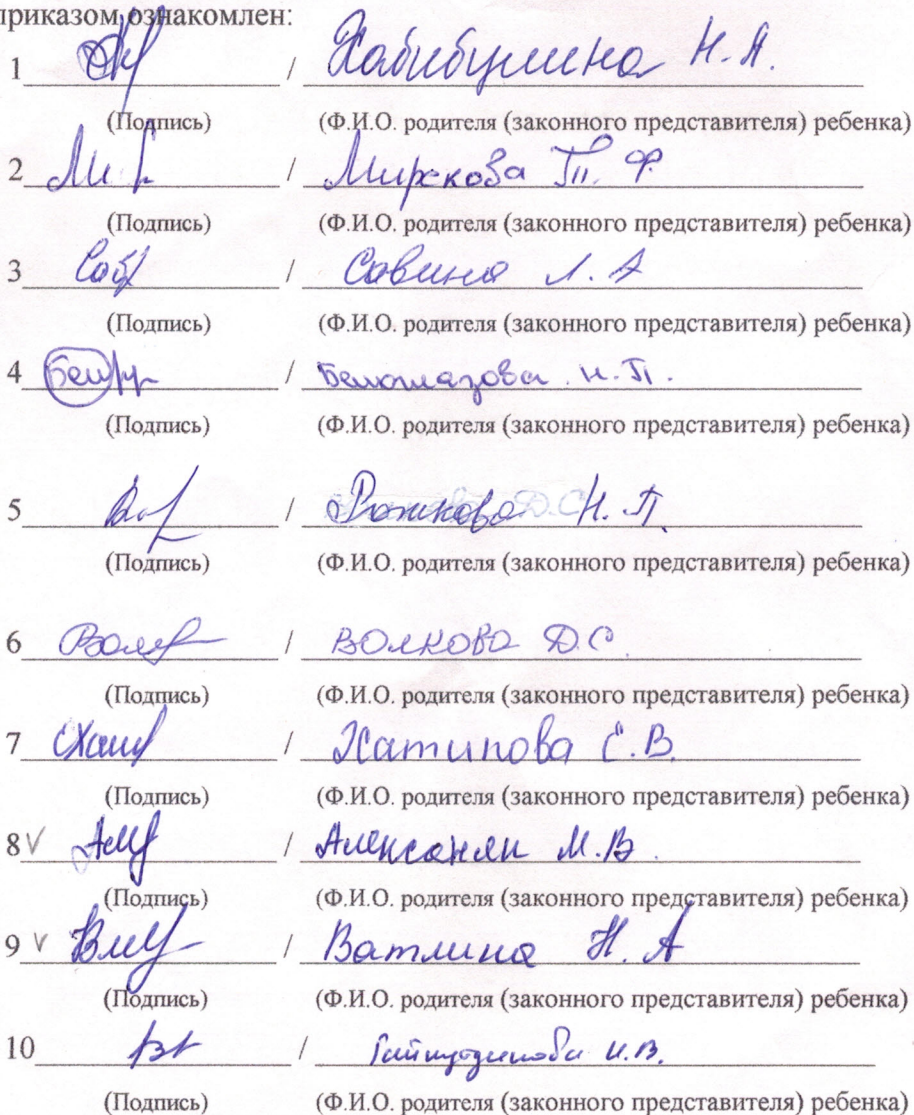 приказом ознакомлен:
1 / Хабибулина Н.А.
(Подпись) (Ф.И.О. родителя (законного представителя) ребенка)
2 / Т. Ф.
(Подпись) (Ф.И.О. родителя (законного представителя) ребенка)
3 / Савина Л. А
(Подпись) (Ф.И.О. родителя (законного представителя) ребенка)
4 / Белоглазова Н.П.
(Подпись) (Ф.И.О. родителя (законного представителя) ребенка)
5 / Н. П.
(Подпись) (Ф.И.О. родителя (законного представителя) ребенка)
6 / Волкова Д.С
(Подпись) (Ф.И.О. родителя (законного представителя) ребенка)
7 / Хатипова С.В.
(Подпись) (Ф.И.О. родителя (законного представителя) ребенка)
8 V / Алексанян М.В.
(Подпись) (Ф.И.О. родителя (законного представителя) ребенка)
9 V / Ватлина Н. А
(Подпись) (Ф.И.О. родителя (законного представителя) ребенка)
10 / И.В.
(Подпись) (Ф.И.О. родителя (законного представителя) ребенка)